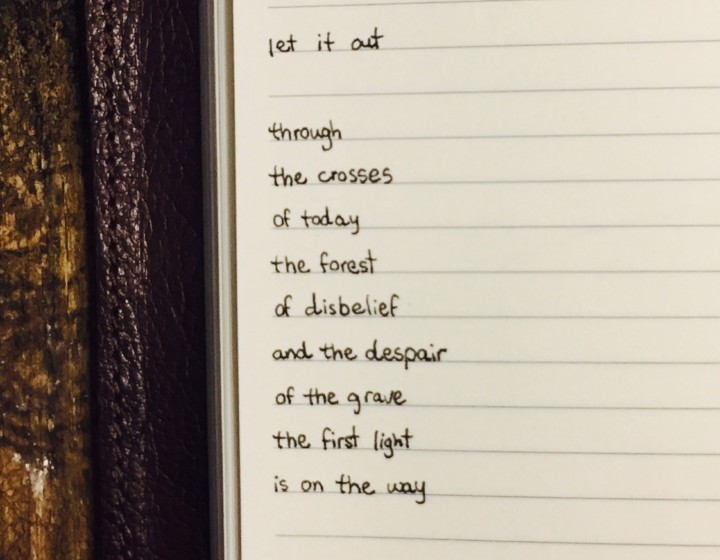 let it out
through
the crosses
of today
the forest
of disbelief
and the despair
of the grave
the first light
is on the way